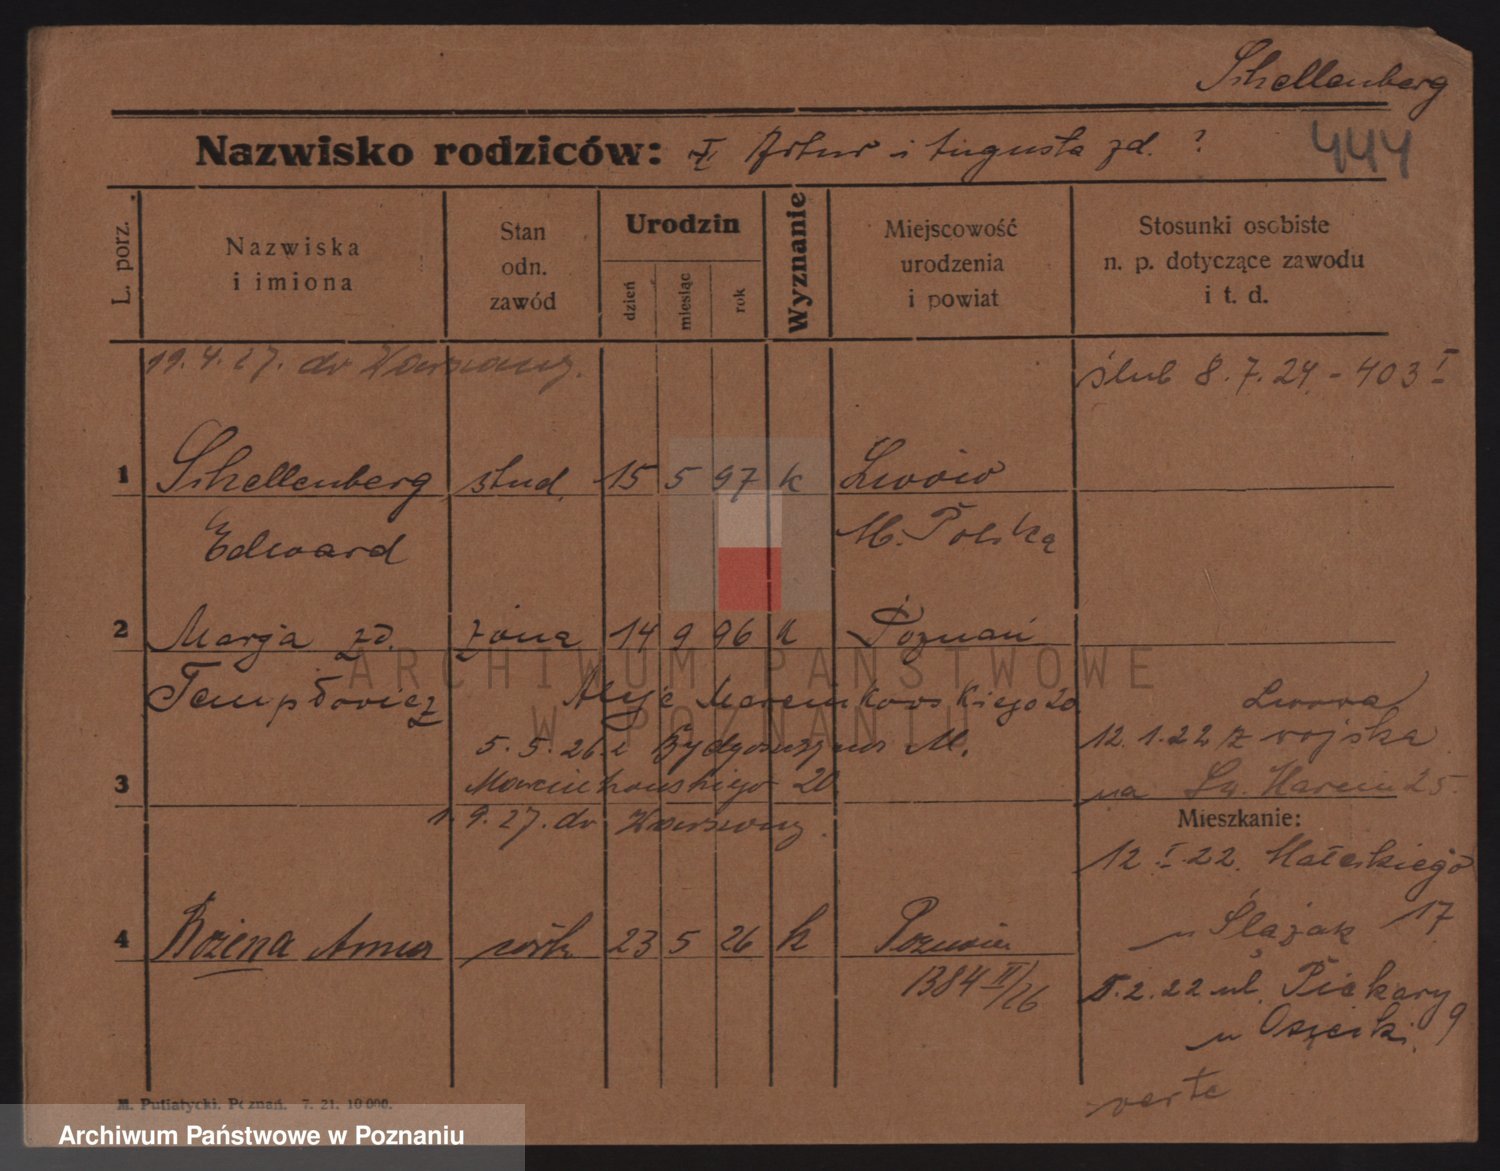 Schellenberg
Nazwisko rodziców: I. Artur i Augusta zd. ?
444
L. porz.
Nazwiska
i imiona
Stan
odn.
zawód
Urodzin
dzień
miesiąc
rok
Wyznanie
Miejscowość
urodzenia
i powiat
Stosunki osobiste
n. p. dotyczące zawodu
i t. d.
19.4.27. do Warszawy.
ślub 8.7.24 - 403 I
1 Schellenberg stud. 15 5 97 k Lwów
Edward M. Polska
2 Marja zd. żona 14 9 96 k Poznań
Tempłowicz Aleje Marcinkowskiego 20
Lwowa
5.5.26 z Bydgoszczy M.
12.1.22 z wojska
3 Marcinkowskiego 20
na Św. Marcin 25
1.9.27. do Warszawy.
Mieszkanie:
12.I.22. Małeckiego
17
u Ślązak
4 Bożena Anna córk. 23 5 26 k Poznań
1384 II/26
5.2.22 ul. Piekary 9
u
verte
M. Putiatycki, Poznań. 7. 21. 10 000.
ARCHIWUM PAŃSTWOWE
W POZNANIU
Archiwum Państwowe w Poznaniu